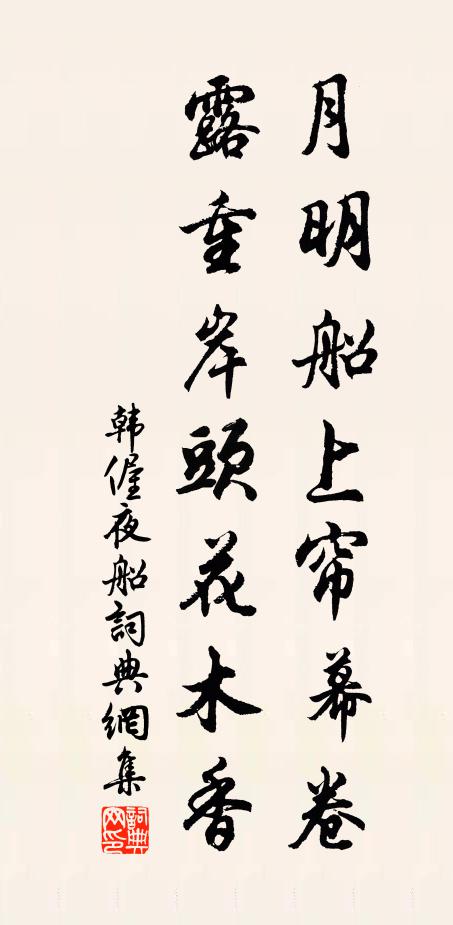 月明船上帘幕卷
露重岸頭花木香
韩偓夜船詞典網集
詞典網印